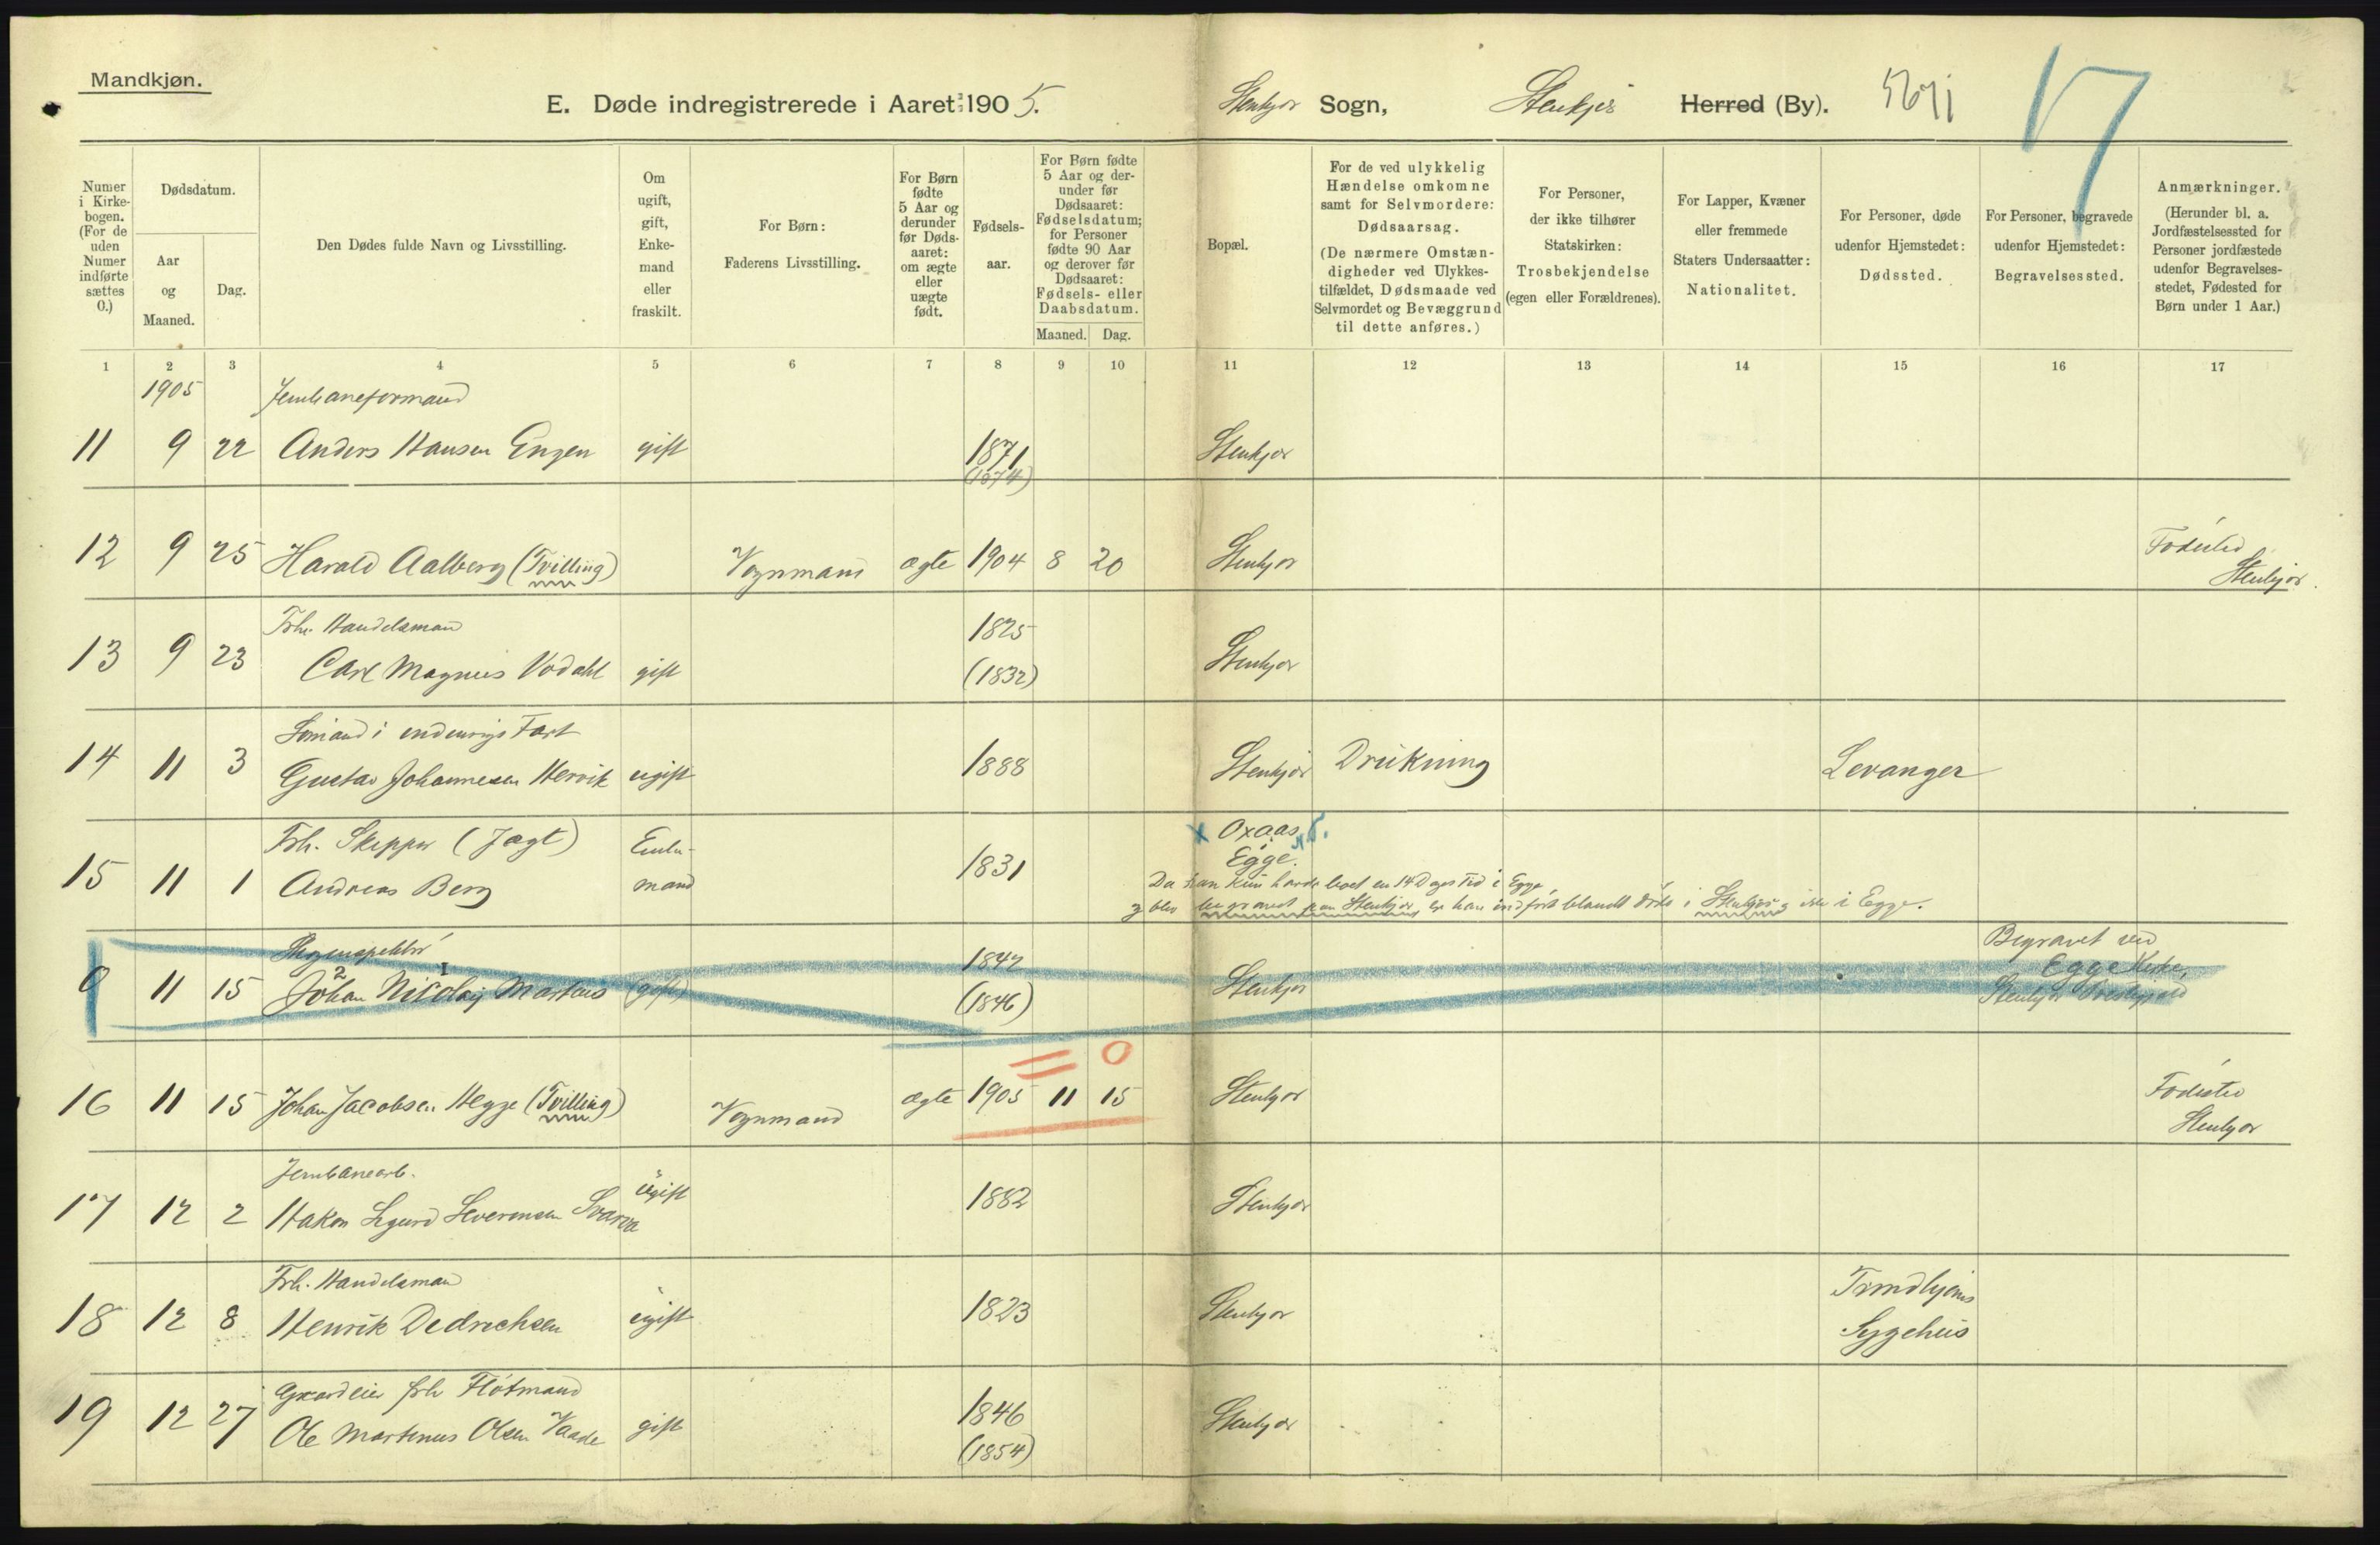 Mandkjøn.
E. Døde indregistrerede i Aaret 1905.
Stenkjær Sogn, Stenkjær Herred (By).
17
Numer i Kirkebogen. (For de uden Numer indførte sættes 0.)
Dødsdatum.
Aar og Maaned.
Dag.
Den Dødes fulde Navn og Livsstilling.
Om ugift, gift, Enkemand eller fraskilt.
For Børn: Faderens Livsstilling.
For Børn fødte 5 Aar og derunder før Dødsaaret: om ægte eller uægte født.
Fødselsaar.
For Børn fødte 5 Aar og derunder før Dødsaaret: Fødselsdatum; for Personer fødte 90 Aar og derover før Dødsaaret: Fødsels- eller Daabsdatum.
Maaned. Dag.
Bopæl.
For de ved ulykkelig Hændelse omkomne samt for Selvmordere: Dødsaarsag. (De nærmere Omstændigheder ved Ulykkestilfældet, Dødsmaade ved Selvmordet og Bevæggrund til dette anføres.)
For Personer, der ikke tilhører Statskirken: Trosbekjendelse (egen eller Forældrenes).
For Lapper, Kvæner eller fremmede Staters Undersaatter: Nationalitet.
For Personer, døde udenfor Hjemstedet: Dødssted.
For Personer, begravede udenfor Hjemstedet: Begravelsessted.
Anmærkninger. (Herunder bl. a. Jordfæstelsessted for Personer jordfæstede udenfor Begravelsesstedet, Fødested for Børn under 1 Aar.)
1 2 3 4 5 6 7 8 9 10 11 12 13 14 15 16 17
1905 Jernbaneformand
11 9 22 Anders Hansen Engen gift 1871 Stenkjær
(1874)
12 9 25 Harald Aalberg (Tvilling) Vognmand ægte 1904 8 20 Stenkjær Fødested Stenkjær.
Fhv. Handelsmand 1825
13 9 23 Carl Magnus Vodahl gift (1832) Stenkjær
Sømand i indenrigs Fart
14 11 3 Gustav Johannesen Hervik ugift 1888 Stenkjær Drukning Levanger
Fhv. Skipper (Jægt) Enke- x Oxaas,
15 11 1 Andreas Berg mand 1831 Egge.
Da han kun havde boet en 14 Dages Tid i Egge,
og blev begravet paa Stenkjær er han indført blandt døde i Stenkjær og ikke i Egge.
1842 Begravet ved
0 11 15 Johan Nicolay Martens (gift) (1846) Stenkjær Egge Kirke, Stenkjær Præstegjeld
2 I
= 0
16 11 15 Johan Jacobsen Hegge (Tvilling) Vognmand ægte 1905 11 15 Stenkjær Fødested Stenkjær
Jernbanearb.
17 12 2 Hakon Sigurd Severensen Svarva ugift 1882 Stenkjær
Fhv. Handelsmand
18 12 8 Henrik Dedrechsen ugift 1823 Stenkjær Trondhjems Sygehus
Gaardeier fhv Fløtmand 1846
19 12 27 Ole Martinus Olsen Vaade gift (1854) Stenkjær